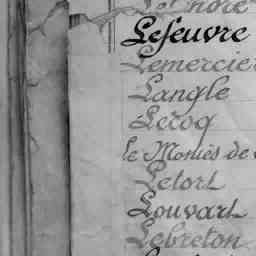 Lefeuvre
Lemercier
Langle
Lecoq
le Moniès de
Letort
Louvart
Lebreton